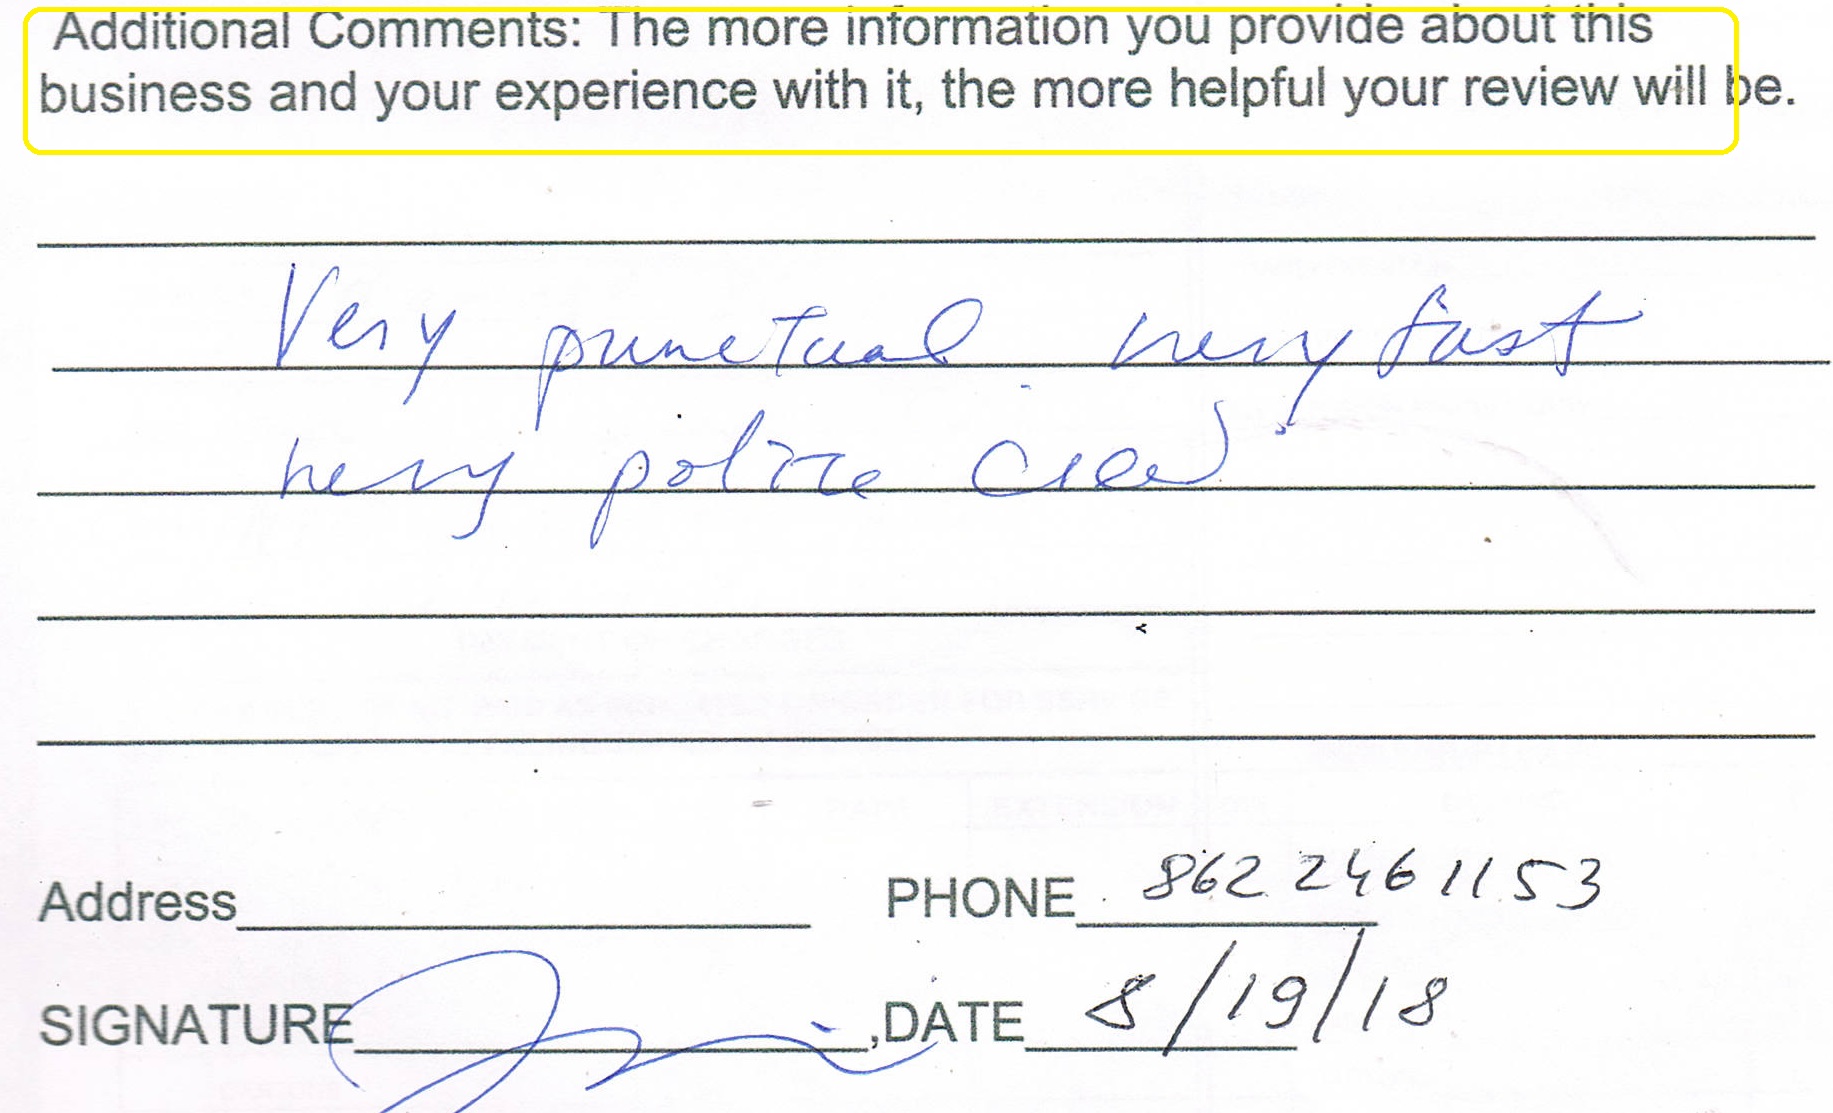 Additional Comments: The more information you provide about this
business and your experience with it, the more helpful your review will be.
Very punctual. very fast
very polite crew
Address PHONE 862 246 1153
SIGNATURE ,DATE 8/19/18